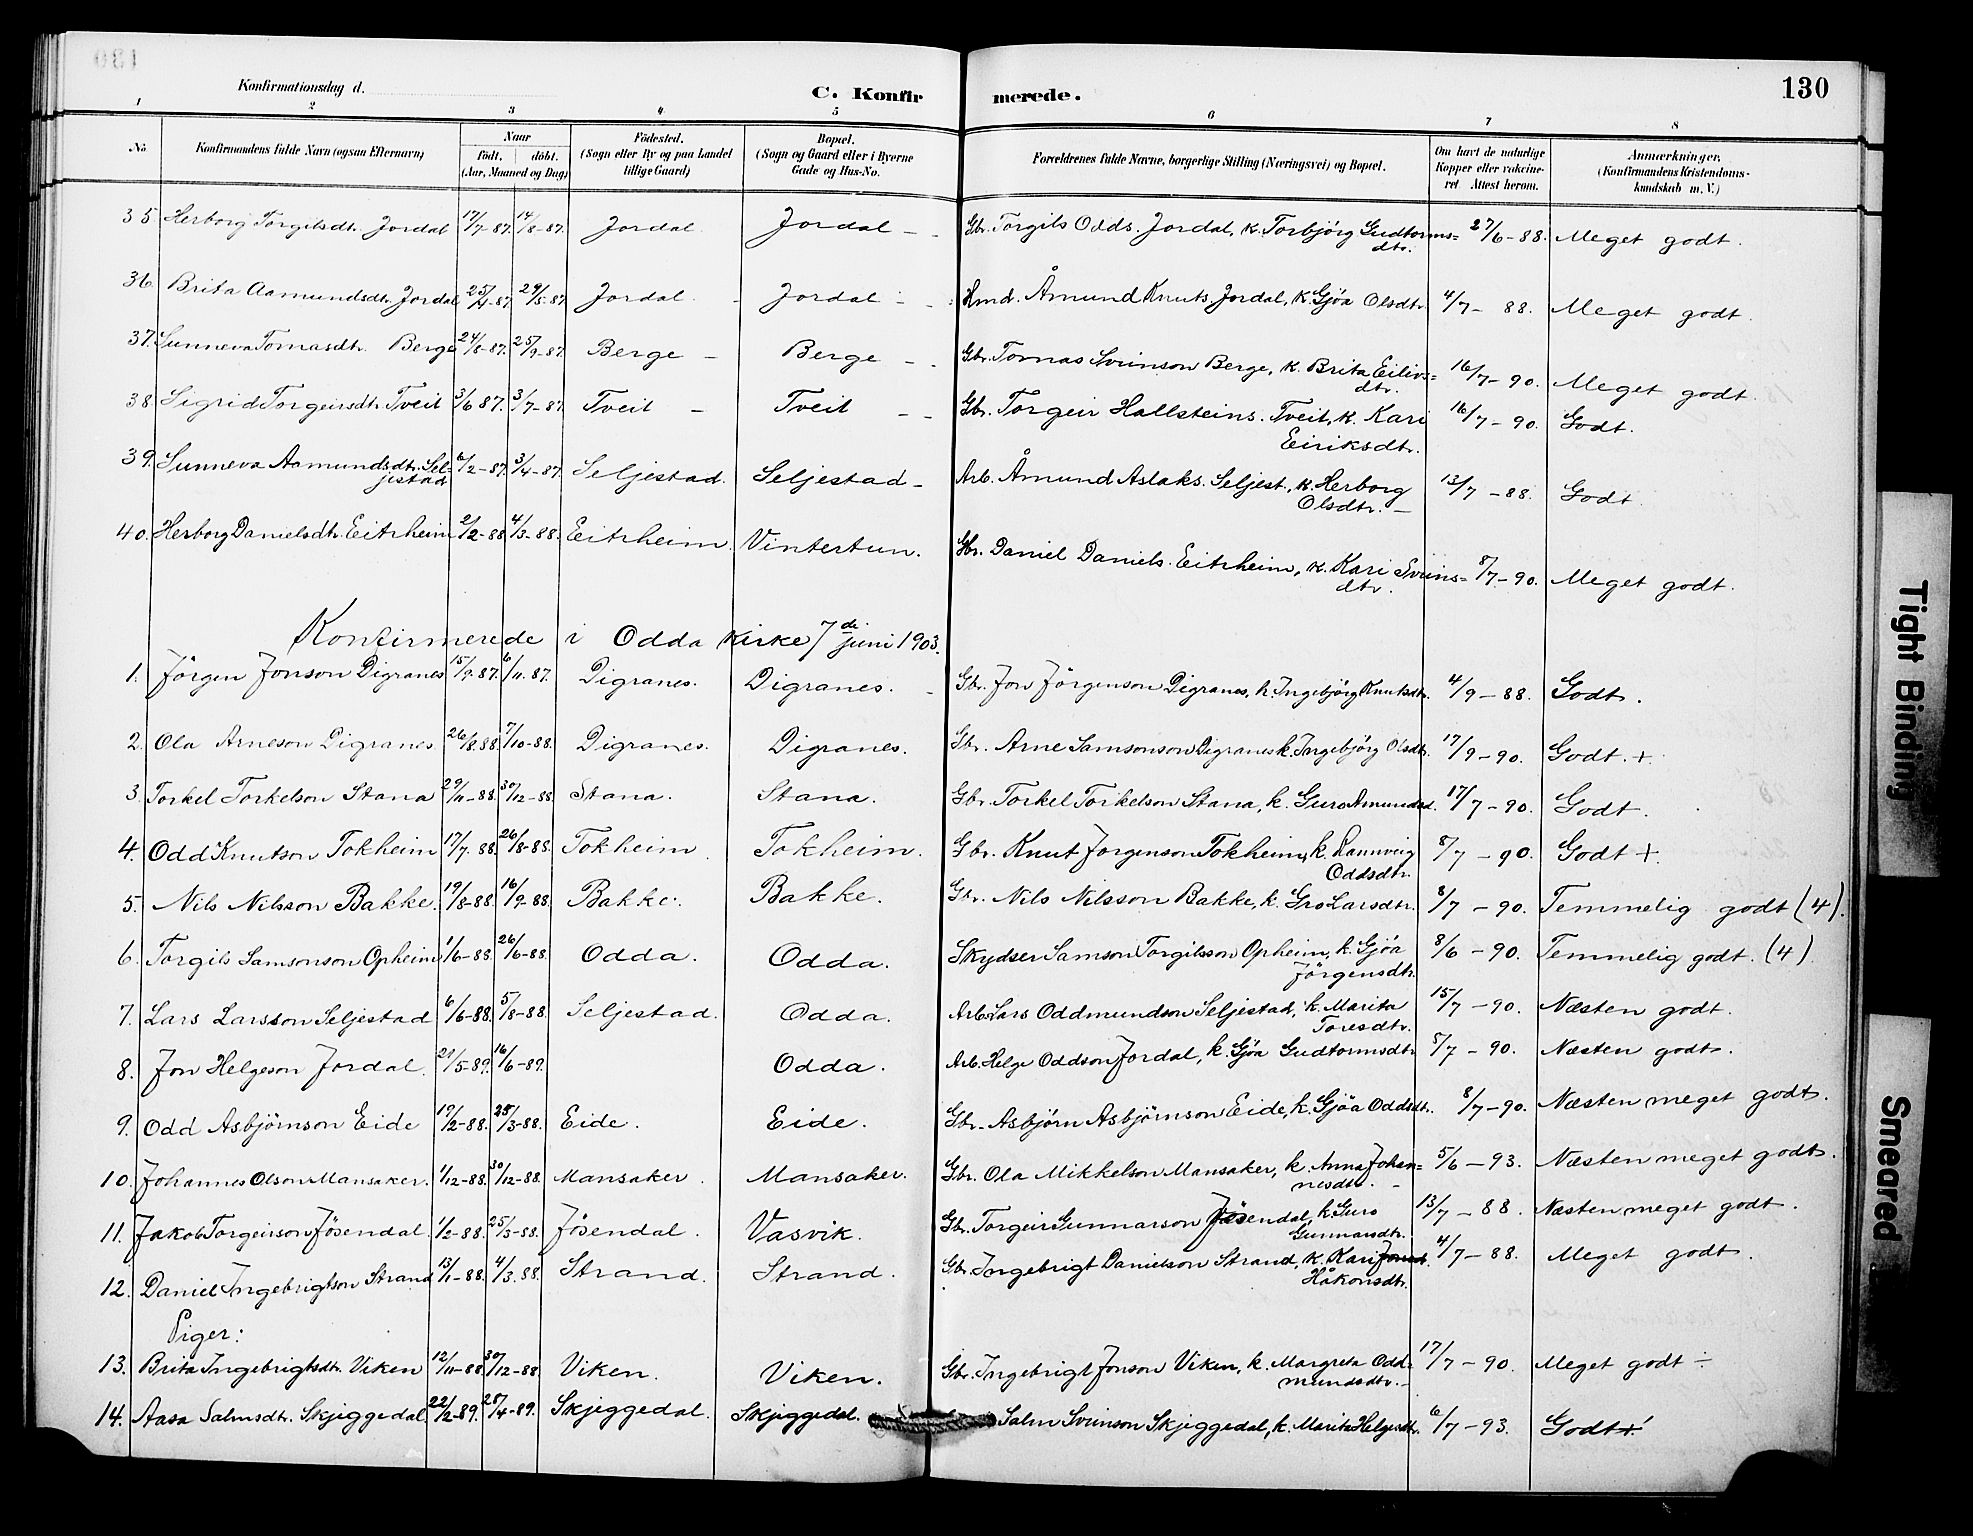 130
Konfirmationsdag d.
C. Konfirmerede.
1 2 3 4 5 6 7 8
No Konfirmandens fulde Navn (ogsaa Efternavn) Naar födt. döbt. (Aar, Maaned og Dag) Födested. (Sogn eller By og paa Landet tillige Gaard) Bopæl. (Sogn og Gaard eller i Byerne Gade og Hus-No. Forældrenes fulde Navne, borgerlige Stilling (Næringsvei) og Bopæl. Om havt de naturlige Kopper eller vakcineret Attest herom. Anmærkninger, (Konfirmandens Kristendomskundskab m. V.)
35 Herborg Torgilsdtr. Jordal 17/7-87. 14/8-87. Jordal Jordal - - Gbr. Torgils Odds. Jordal, k. Torbjörg Gudtorms= 27/6-88. Meget godt.
dtr.
36. Brita Aamundsdtr. Jordal 25/4-87 29/5-87 Jordal. - Jordal - - Hmd. Åmund Knuts. Jordal, k. Gjöa Olsdtr. 4/7- 88. Meget godt.
37. Sunneva Tomasdtr. Berge 24/8-87. 25/9-87. Berge - Berge - - Gbr. Tomas Sveinson Berge, k. Brita Eilivs= 16/7-90. Meget godt.
dtr.
38. Sigrid Torgeirsdtr. Tveit 3/6 87. 3/7-87. Tveit - Tveit - - Gbr. Torgeir Hallsteins. Tveit, k. Kari 16/7-90. Godt.
Eiriksdtr.
39. Sunneva Aamundsdtr. Sel= 6/2-87. 3/4-87. Seljestad. Seljestad - Arb. Åmund Aslaks. Seljest., k. Herborg 13/7-88. Godt
jestad Olsdtr. -
40. Herborg Danielsdtr. Eitrheim 2/2-88 4/3-88. Eitrheim. Vintertun. Gbr. Daniel Daniels. Eitrheim, k. Kari Sveins= 8/7-90. Meget godt.
dtr.
Konfirmerede i Odda Kirke 7de juni 1903.
1. Jörgen Jonson Digranes 15/9-87. 6/11.87. Digranes. Digranes. - Gbr. Jon Jörgenson Digranes, k. Ingebjörg Knutsdtr. 4/9-88. Godt.
2. Ola Arneson Digranes. 26/8.88. 7/10-88. Digranes. Digranes. Gbr. Arne Samsonson Digranes k. Ingebjörg Olsdtr. 17/9-90. Godt. +
3. Torkel Torkelson Stana 29/11-88. 30/12-88. Stana. Stana. Gbr. Torkel Torkelson Stana, k. Guro Amundsd. 17/7-90. Godt.
4. Odd Knutson Tokheim 17/7.88. 26/8-88. Tokheim. Tokheim. Gbr. Knut Jorgenson Tokheim, k. Rannveig 8/7-90. Godt +.
Oddsdtr.
5. Nils Nilsson Bakke. 19/8-88. 16/9-88. Bakke. Bakke. Gbr. Nils Nilsson Bakke, k. Gro Larsdtr. 8/7-90. Temmelig godt (4).
6. Torgils Samsonson Opheim 1/6-88. 26/6-88. Odda. Odda. Skydser Samson Torgilsson Opheim, k. Gjöa 8/6-90. Temmelig godt. (4).
Jörgensdtr.
7. Lars Larsson Seljestad 6/6-88. 5/8-88. Seljestad. Odda. Arb. Lars Oddmundson Seljestad, k. Marita 15/7-90. Næsten godt.
Toresdtr.
8. Jon Helgeson Jordal. 21/5-89. 16/6-89. Odda. Arb. Helge Oddson Jordal, k. Gjöa Gudtormsdtr 8/7-90. Næsten godt.
9. Odd Asbjörnson Eide 19/2-88. 25/3-88. Eide. Eide. Gbr. Asbjörn Asbjörnson Eide, k. Gjöa Oddsdtr. 8/7-90. Næsten meget godt.
10. Johannes Olson Mansaker. 1/12-88. 30/12-88. Mansaker. Mansaker. Gbr. Ola Mikkelson Mansaker, k. Anna Johan= 5/6-93. Næsten meget godt.
nesdtr. -
11. Jakob Torgeirson Jösendal. 1/2-88. 25/3-88. Jösendal. Vasvik. Gbr. Torgeir Gunnarson Jösendal, k. Guro 13/7-88. Næsten meget godt.
Gunnarsdtr.
12. Daniel Ingebrigtson Strand 13/1-88. 4/3.88. Strand. Strand. Gbr. Ingebrigt Danielson Strand, k. Kari 4/7-88. Meget godt.
Håkonsdtr.
Piger:
13. Brita Ingebrigtsdtr. Viken 12/11-88. 30/12-88 Viken. Viken. Gbr. Ingebrigt Jonson Viken, k. Margreta Odd= 17/7-90. Meget godt ÷
mundsdtr. -
14. Aasa Salmsdtr. Skjeggedal. 22/2-89. 28/4-89. Skjeggedal. Skjeggedal. Salm Sveinson Skjeggedal, k. Marita Helgesdtr. 6/7-93. Godt +
Tight Binding
Smeared